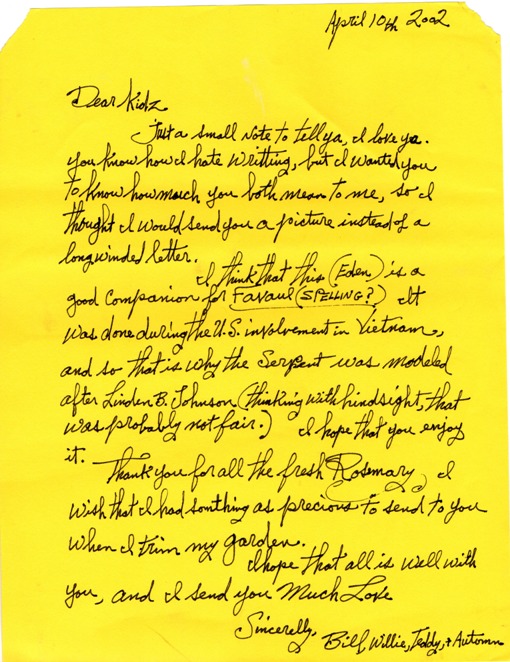 April 10th 2002
Dear Kidz
Just a small note to tell ya, I love ya.
you know how I hate writting, but I wanted you
to know how much you both mean to me, so I
thought I would send you a picture instead of a
long winded letter.
I think that this (Eden) is a
good companion for Favaul (SPELLING?) It
was done during the U.S. involvement in Vietnam,
and so that is why the Serpent was modeled
after Linden B. Johnson (thinking with hindsight, that
was probably not fair.) I hope that you enjoy
it.
Thank you for all the fresh Rosemary, I
wish that I had somthing as precious to send to you
when I trim my garden.
I hope that all is well with
you, and I send you Much Love
Sincerelly,
Bill, Willie, Teddy, + Autumn